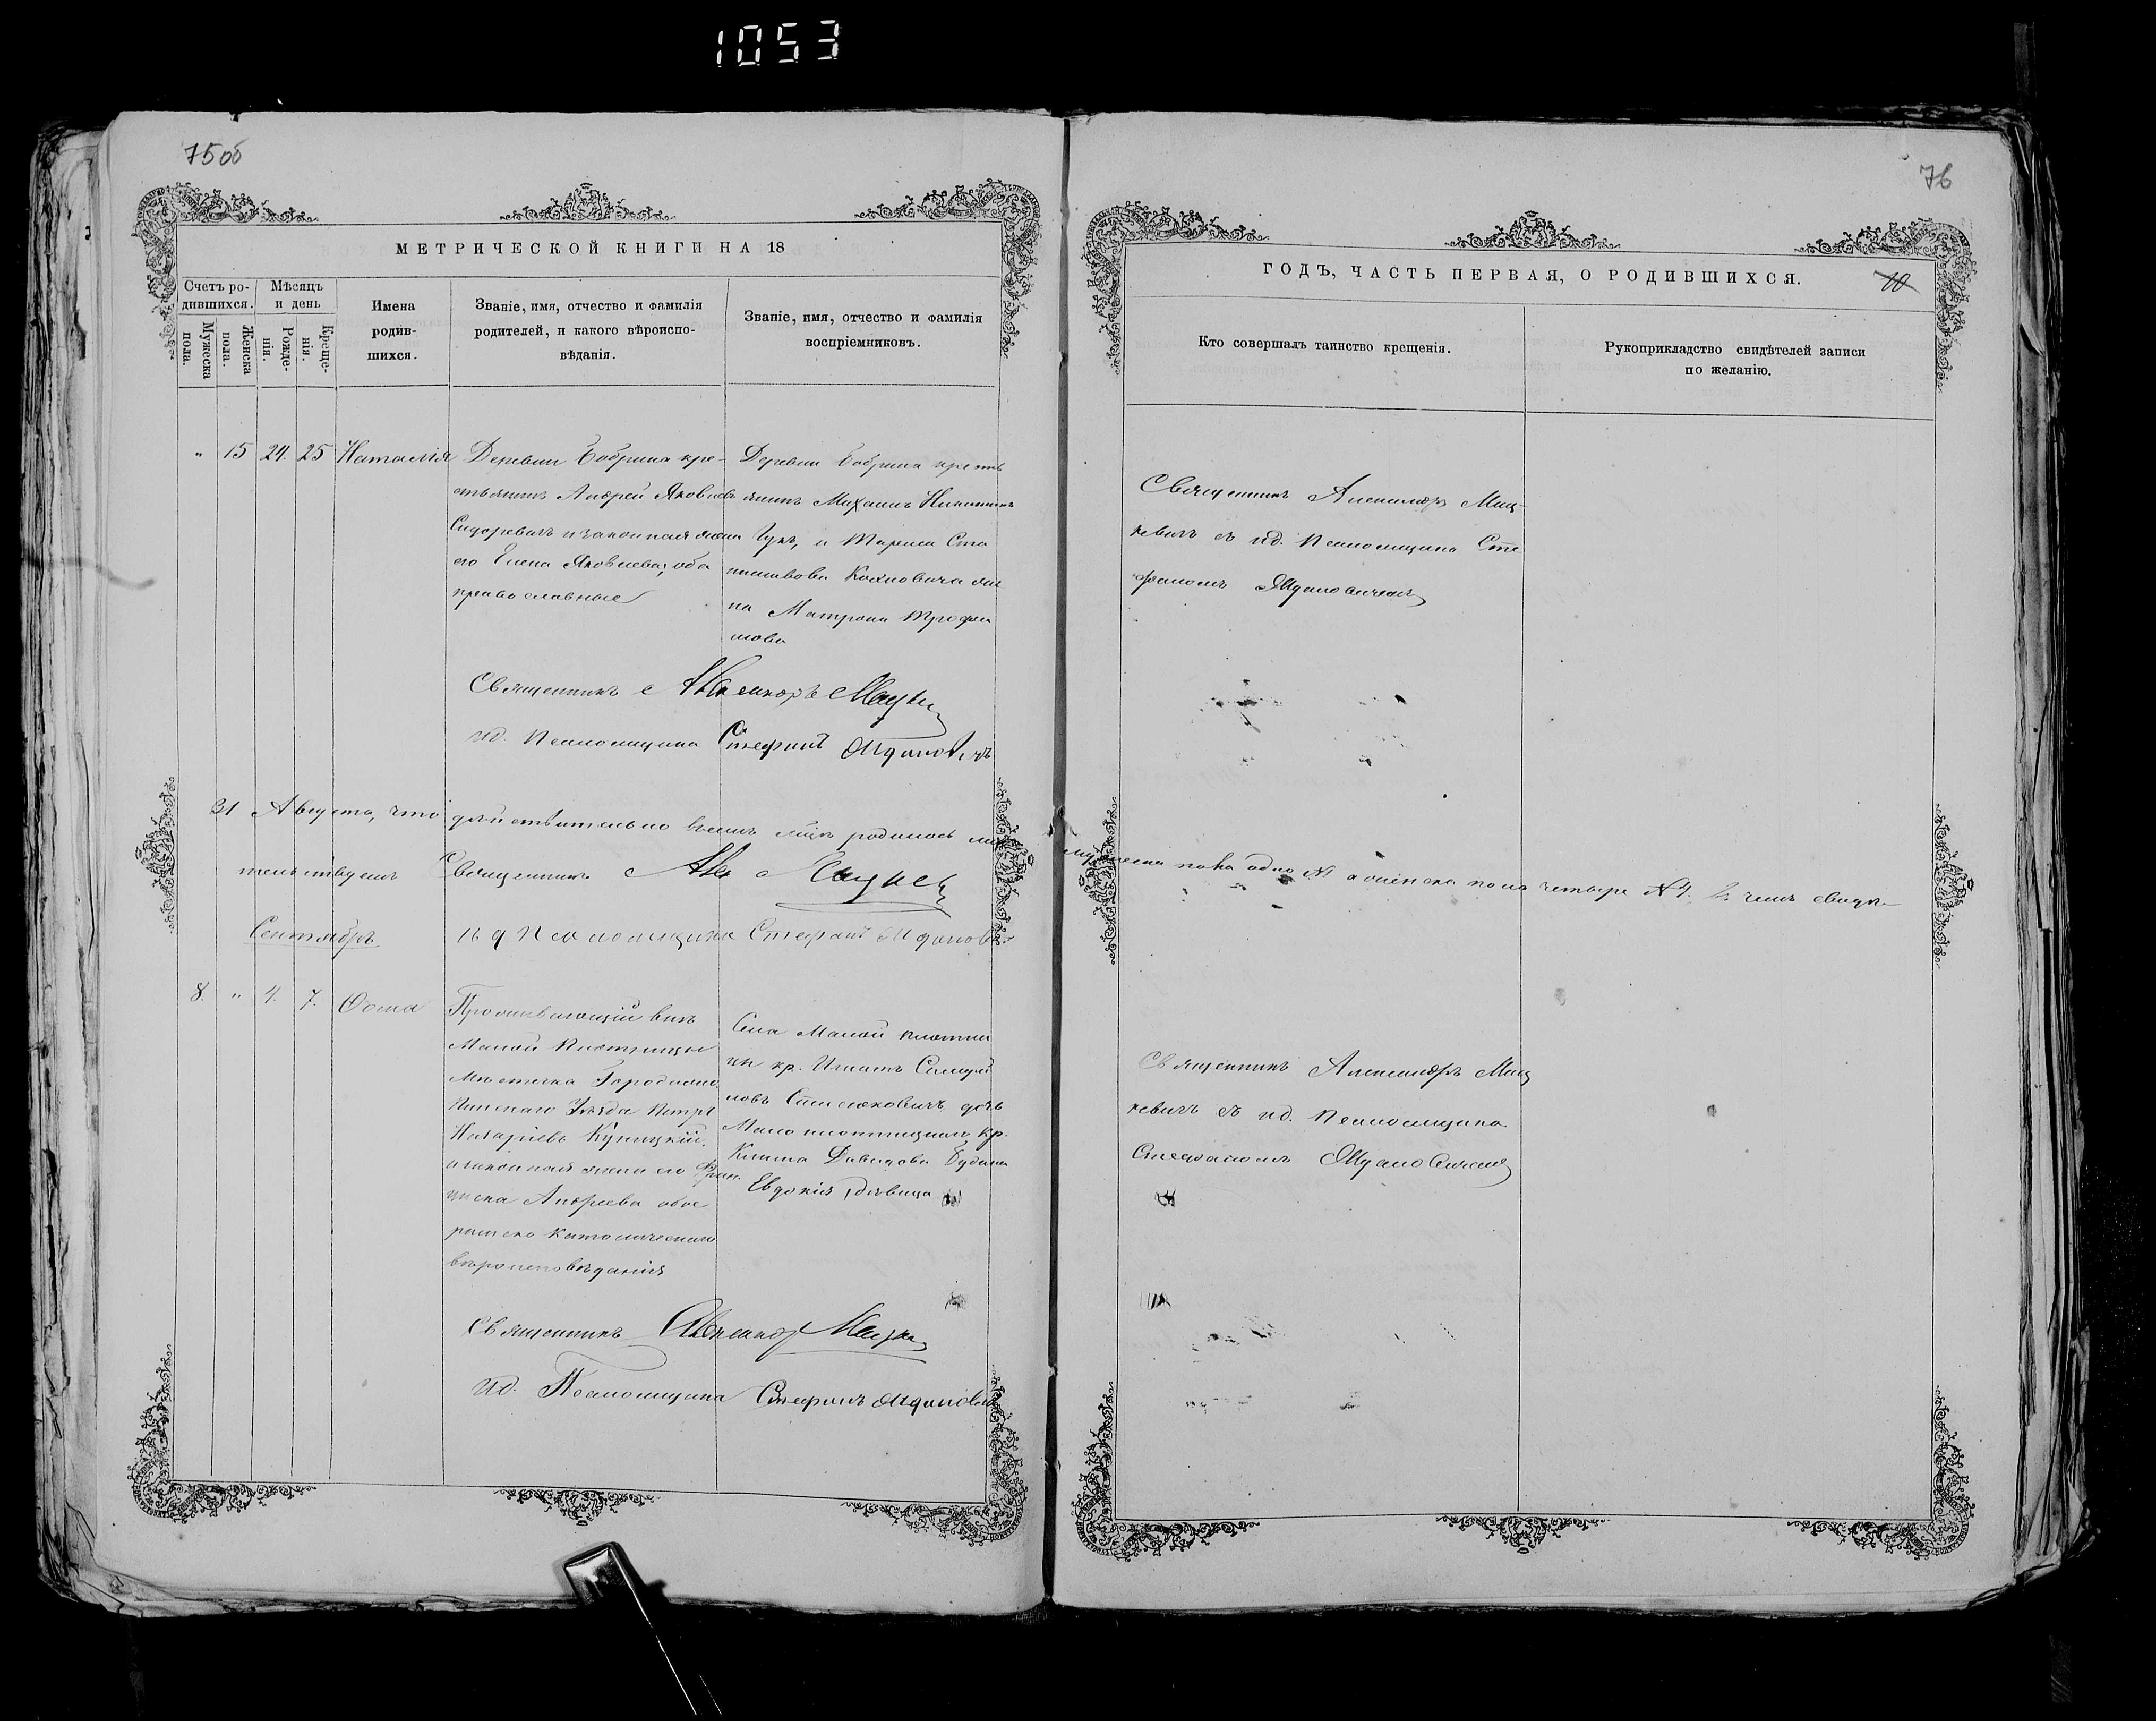 1053
75об
МЕТРИЧЕСКОЙ КНИГИ НА 18
Счетъ ро-
дившихся.
Мужеска
пола.
Женска
пола.
Мѣсяцъ
и день
Рожде-
нія.
Креще-
нія.
Имена
родив-
шихся.
Званіе, имя, отчество и фамилія
родителей, и какого вѣроиспо-
вѣданія.
Званіе, имя, отчество и фамилія
воспріемниковъ.
„ 15 24. 25 Наталія
Деревни Бобрика кре-
стьянинъ Андрей Яковлевъ
Сидоревичъ и законная жена
его Елена Яковлева; оба
православные
Деревни Бобрика кресть
янинъ Михаилъ
Чукъ, и Тариса
Кохновича же
на Матрона Трофи
мова
Священникъ Александръ Мацкев
ид. Псаломщика Стефанъ Ждановичъ
31 Августа, что действительно въ семъ м-цѣ родилось
тельствуемъ Священникъ Ал. Мацкев
Сентябрь
ид Псаломщика Стефанъ Жданов
8. „ 4. 7. Ѳома
Проживающій въ
Малой Плотницы
мѣстечка Городно
Пинскаго Уѣзда Петръ
Назаріевъ Куницкій.
и законная жена его Фран
циска Андреева обое
римско католическаго
вѣроисповѣданія
Села Малой Плотни
цы кр. Игнатъ
новъ дочь
Мало плотницкаго кр.
Климта Давидова
Евдокія, дѣвица
Священникъ Александр Мацкев
ид. Псаломщика Стефанъ Жданович
76
ГОДЪ, ЧАСТЬ ПЕРВАЯ, О РОДИВШИХСЯ.
10
Кто совершалъ таинство крещенія.
Рукоприкладство свидѣтелей записи
по желанію.
Священникъ Александръ Мац-
кевичъ съ ид. Псаломщика Сте
фаномъ Ждановичемъ
мужеска пола одно №1 а женска пола четыре №4. въ чемъ свидѣ-
Священникъ Александръ Мац
кевичъ съ ид. Псаломщика
Стефаномъ Ждановичемъ